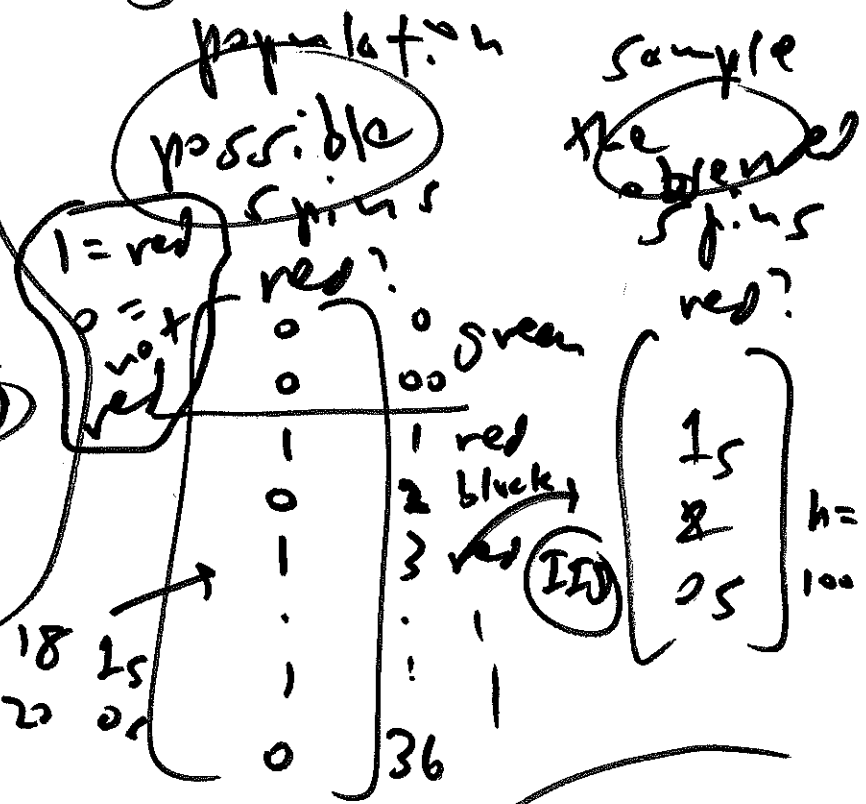 population
possible
spins
1 = red
0 = not
red
red?
0 0 green
0 00
1 1 red
0 2 black
1 3 red
. .
18 1s
20 0s
1
0 36
sample
the
observed
spins
red?
IID
1s
&
0s
n =
100